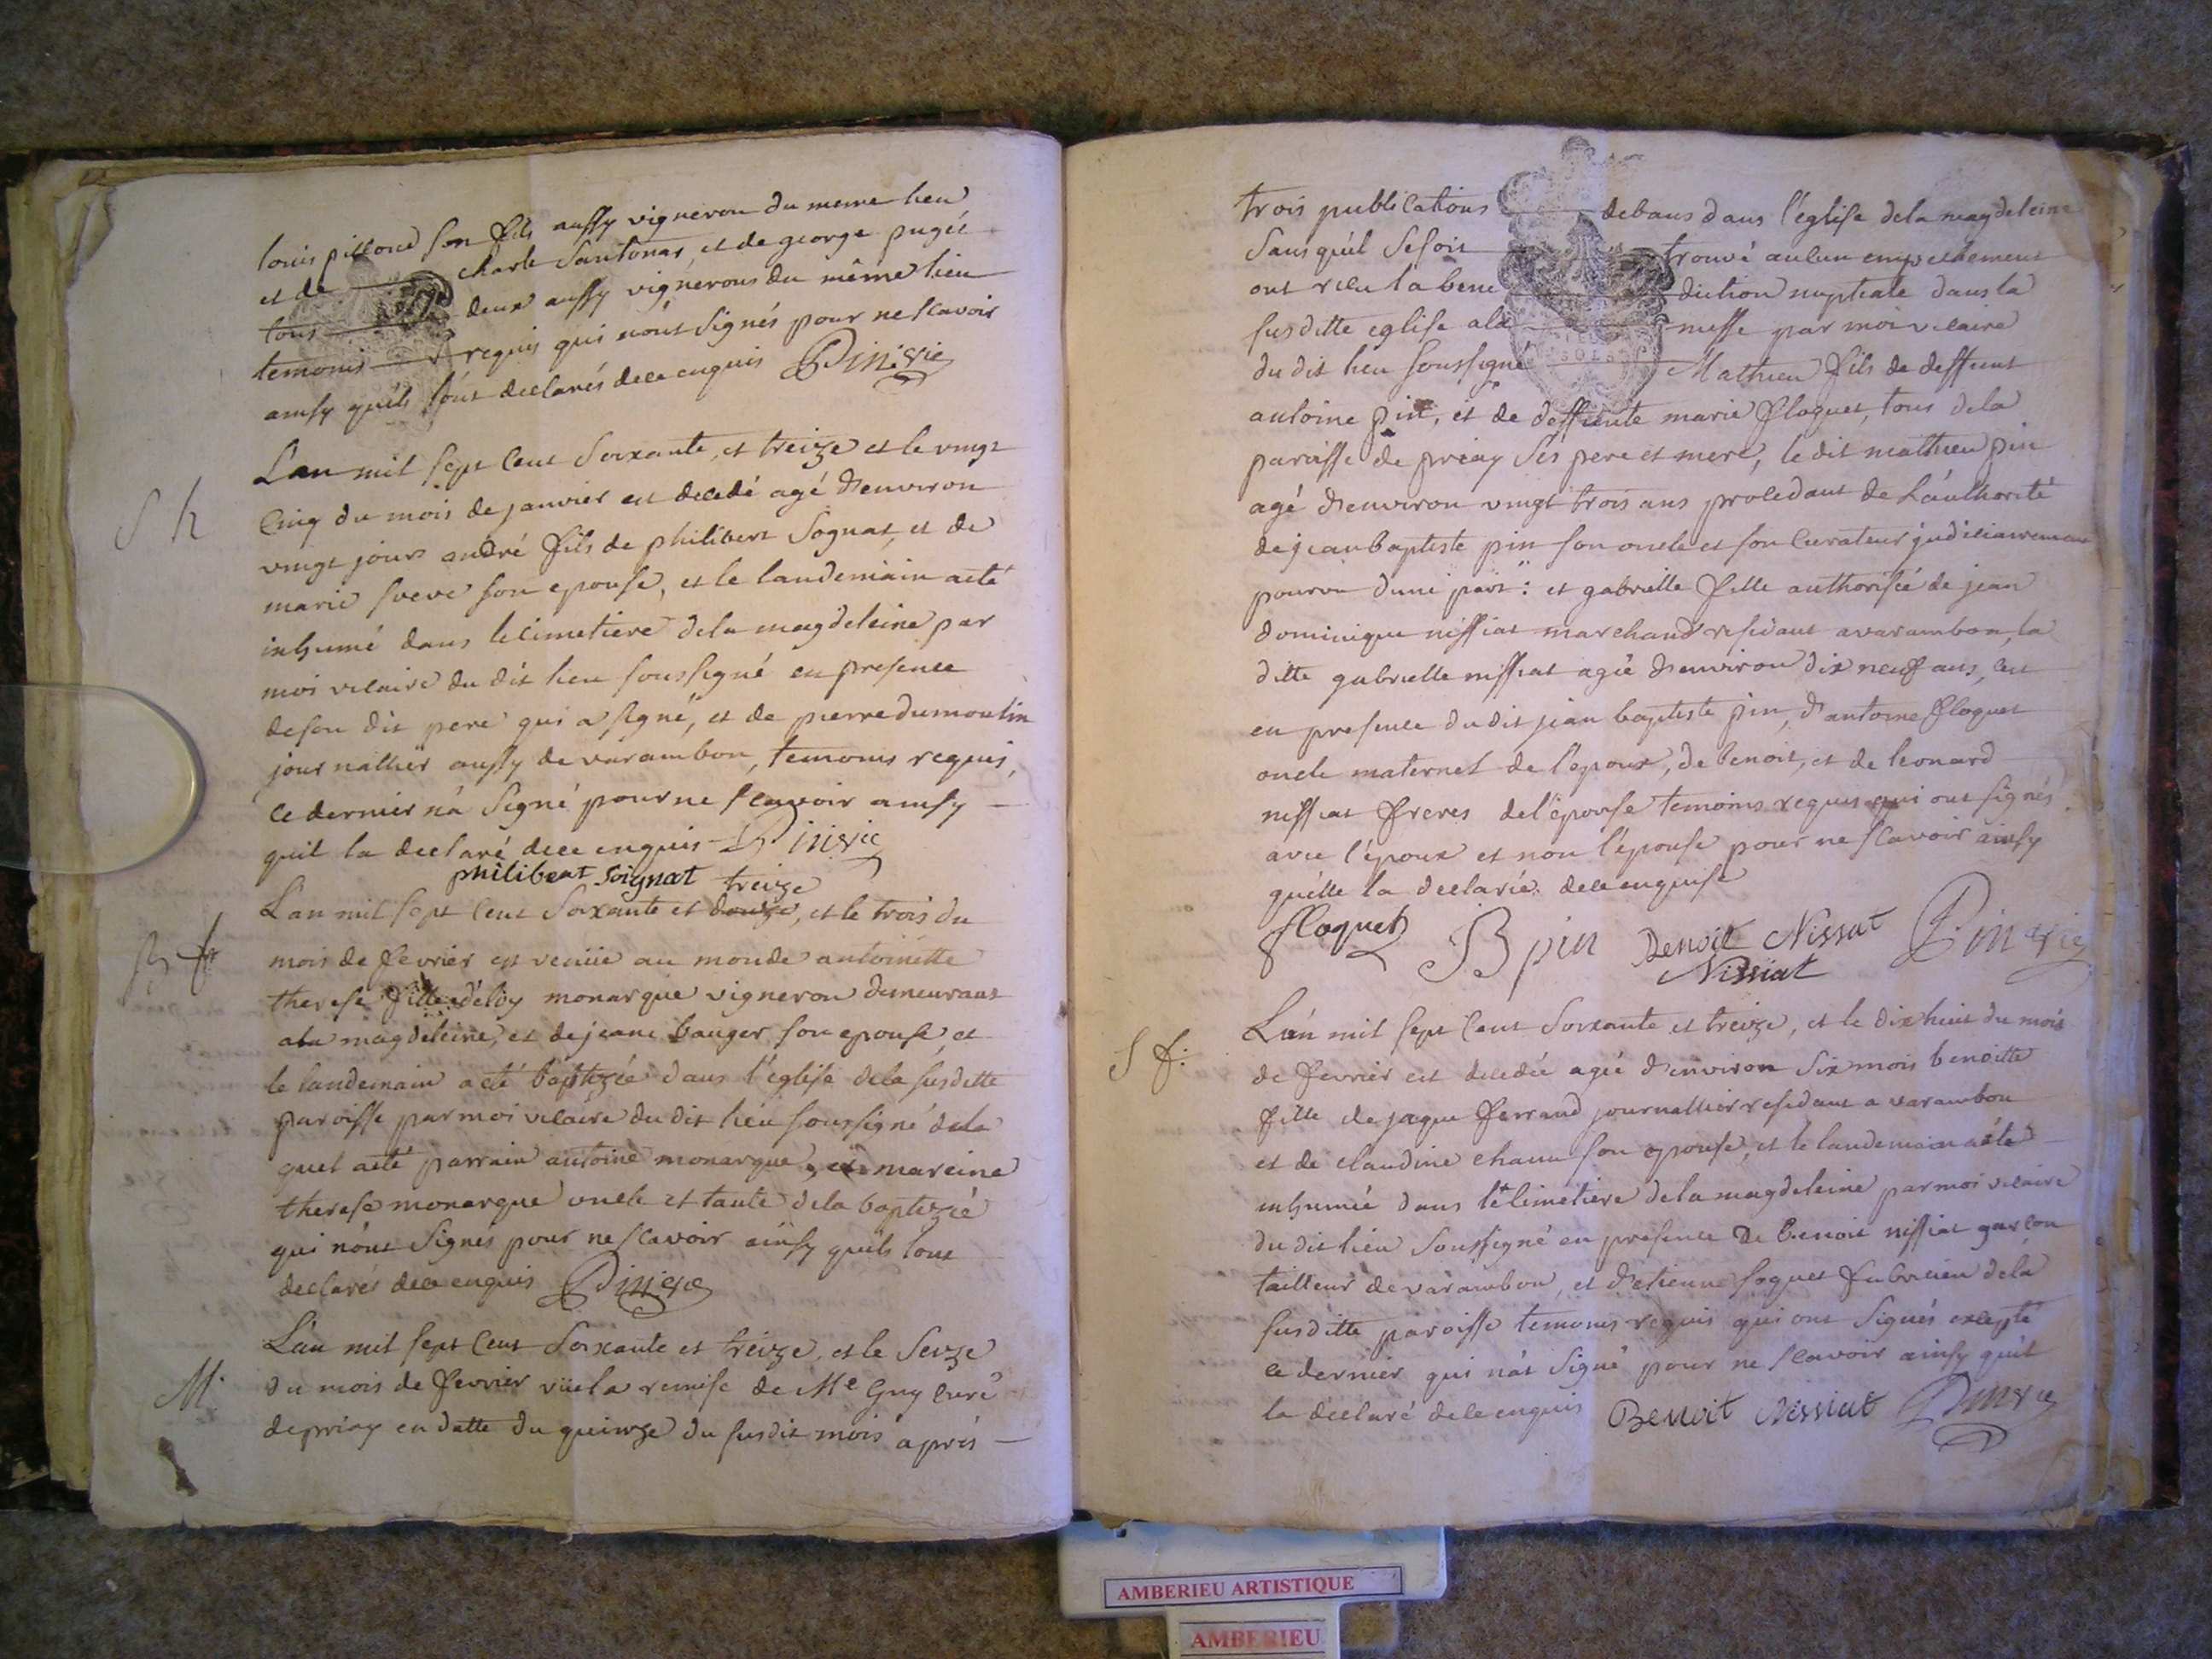 louis pilloud son fils aussy vigneron du meme lieu
et de charle Santonas, et de george puget
tous deux aussy vignerons du même lieu
temoins requis qui nónt Signés pour ne scavoir
ainsy quils lónt declarés de ce enquis
L'an mil sept cent Soixante, et treize et le vingt
S h
cinq du mois de janvier est decedé agé d'environ
vingt jours andré fils de philibert Sognat, et de
marie son epouse, et le landemain aété
inhumé dans le cimetiere dela magdeleine par
moi vicaire du dit lieu soussigné en presence
de son dit pere qui a signé, et de pierre dumoulin
journallier aussy de varambon, temoins requis,
ce dernier ná Signé pour ne scavoir ainsy
quil la declaré de ce enquis
philibert Soignat treize
L'an mil sept cent Soixante et douze, et le trois du
B
mois de fevrier est venüe au monde antoinette
therese fille d'éloy monarque vigneron demeurant
ala magdeleine, et de jeane bauger son epouse, et
le landemain aeté baptizée dans l'église dela susdette
paroisse par moi vicaire du dit lieu soussigné dela
quel aété parrain antoine monarque, et mareine
therese monarque oncle et tante dela baptizée
qui nónt Signés pour ne scavoir ainsy quils lont
declarés de ce enquis
L'an mil sept cent Soixante et treize, et le Seize
M.
du mois de fevrier vüe la remise de Me Guy curé
de priay en datte du quinze du susdit mois aprés
trois publications de bans dans l'église dela magdeleine
Sans quil Se soit trouvé aucun empechement
ont recu la bene diction nuptiale dans la
susditte eglise a la messe par moi vicaire
du dit lieu soussigné Mathieu fils de deffunt
antoine pin, et de deffunte marie floquet, tous dela
paroisse de priay Ses pere et mere, le dit mathieu pin
agé d'environ vingt trois ans procedant de Láuthorité
de jean baptiste pin son oncle et son curateur judiciairement
pourvu dune part: et gabrielle fille authorisée de jean
dominique nissiat marchand residant a varambon, la
ditte gabrielle nissiat agée d'environ dix neuf ans, cest
en presence du dit jean baptiste pin, d'antoine floquet
oncle maternel de l'epoux, de benoit, et de leonard
nissiat freres del'épouse temoins requis qui ont signés
avec l'époux et non l'épouse pour ne scavoir ainsy
quélle la declarée de ce enquise
floquet B pin Benoit Nissiat
Nissiat
L'án mil sept cent Soixante et treize, et le dix huit du mois
S f:
de fevrier est decedée agée d'environ Six mois benoitte
fille de jaque ferrand journallier residant a varambon
et de claudine chanu son epouse, et le landemain aété
inhumée dans le cimetiere dela magdeleine par moi vicaire
du dit lieu Soussigné en presence De benoit nissiat garcon
tailleur de varambon, et d'etienne foquet fabricien dela
susditte paroisse temoins requis qui ont Signés excepté
ce dernier qui nát Signé pour ne scavoir ainsy quil
la déclaré de ce enquis Benoit Nissiat
AMBERIEU ARTISTIQUE
AMBERIEU